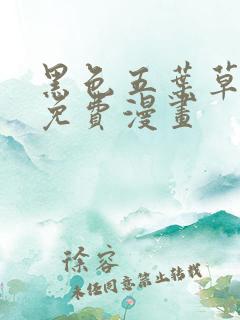 黑色五葉草
免費漫畫
徐容
未经同意禁止转载